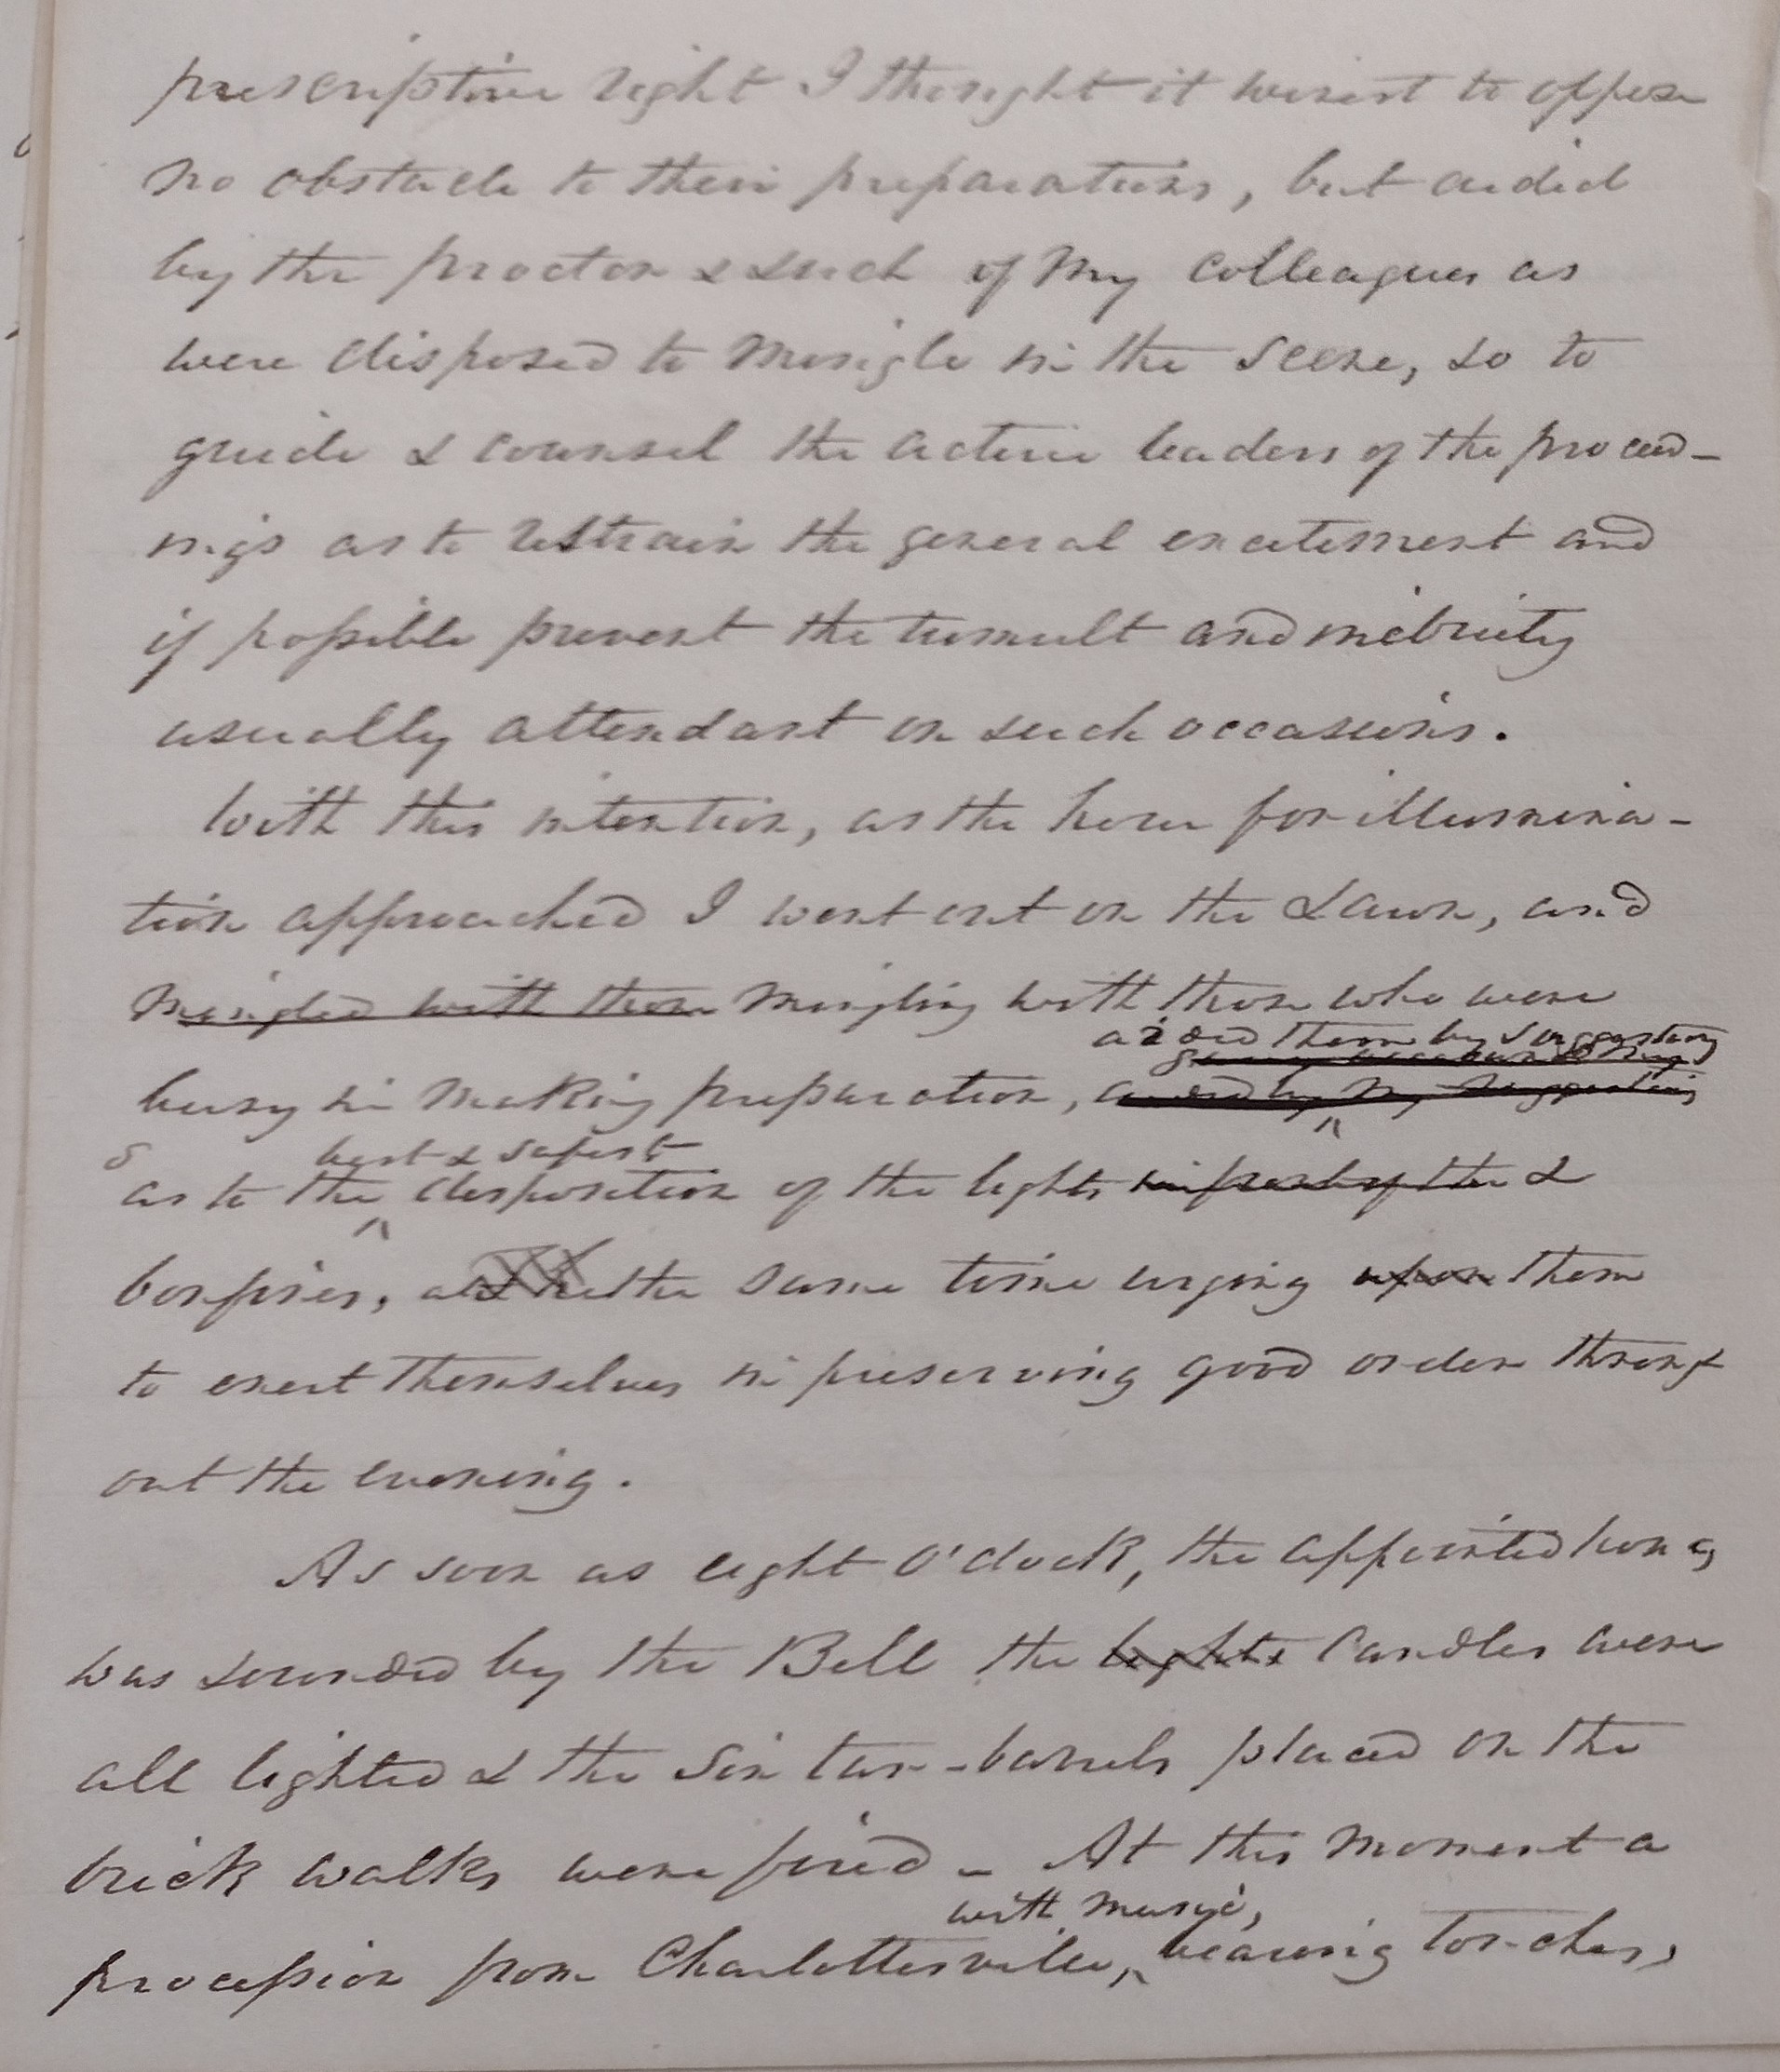 prescriptive right I thought it wisest to oppose
no obstacle to their preparations, but aided
by the proctor & such of my colleagues as
were disposed to mingle in the scene, so to
guide & counsel the active leaders of the proceed-
ings as to restrain the general excitement and
if possible prevent the tumult and inebriety
usually attendant on such occasions.
With this intention, as the hour for illumina-
tion approached I went out on the Lawn, and
Mingled with those mingling with those who were
aided them by suggestions
busy in making preparation, aided by my suggestions
best & safest
as to the disposition of the lights &
bonfires, at the same time urging upon them
to exert themselves in preserving good order throug
out the evening.
As soon as eight O'clock, the appointed hour,
was sounded by the Bell the lights Candles were
all lighted & the six tar-barrels placed on the
brick walks were fired - At this moment a
with music,
procession from Charlottesville, bearing torches,